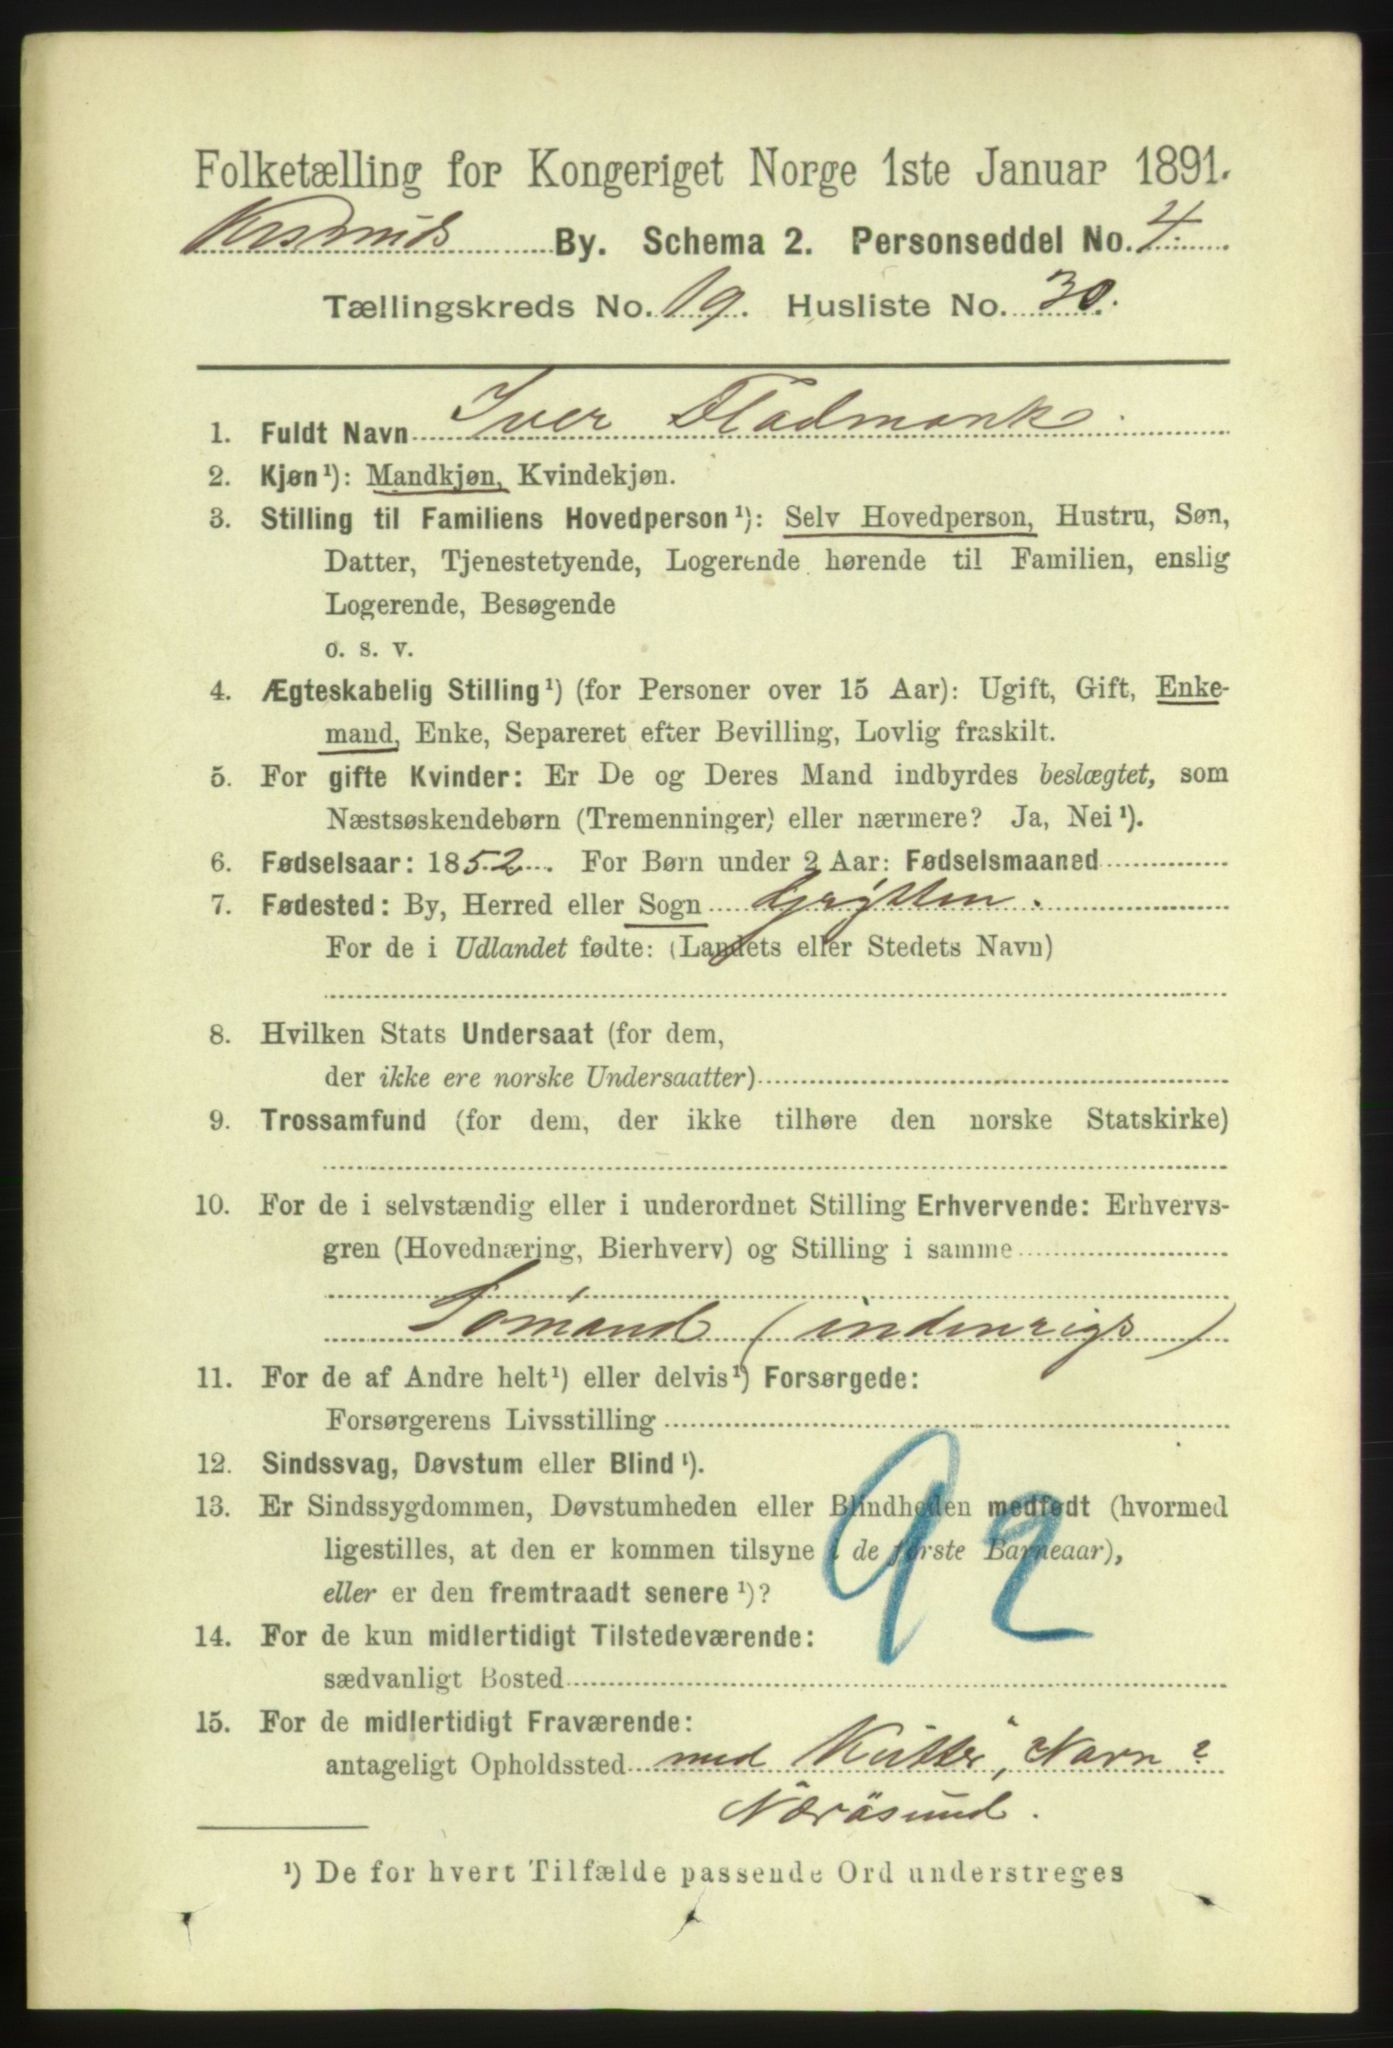 Folketælling for Kongeriget Norge 1ste Januar 1891.
Krsunds By. Schema 2. Personseddel No. 4.
Tællingskreds No. 19. Husliste No. 30.
1. Fuldt Navn Iver Fladmark.
2. Kjøn¹): Mandkjøn, Kvindekjøn.
3. Stilling til Familiens Hovedperson¹): Selv Hovedperson, Hustru, Søn,
Datter, Tjenestetyende, Logerende hørende til Familien, enslig
Logerende, Besøgende
o. s. v.
4. Ægteskabelig Stilling¹) (for Personer over 15 Aar): Ugift, Gift, Enke-
mand, Enke, Separeret efter Bevilling, Lovlig fraskilt.
5. For gifte Kvinder: Er De og Deres Mand indbyrdes beslægtet, som
Næstsøskendebørn (Tremenninger) eller nærmere? Ja, Nei¹).
6. Fødselsaar: 1852. For Børn under 2 Aar: Fødselsmaaned
7. Fødested: By, Herred eller Sogn Grytten.
For de i Udlandet fødte: (Landets eller Stedets Navn)
8. Hvilken Stats Undersaat (for dem,
der ikke ere norske Undersaatter)
9. Trossamfund (for dem, der ikke tilhøre den norske Statskirke)
10. For de i selvstændig eller i underordnet Stilling Erhvervende: Erhvervs-
gren (Hovednæring, Bierhverv) og Stilling i samme
Sømand (indenrigs)
11. For de af Andre helt¹) eller delvis¹) Forsørgede:
Forsørgerens Livsstilling
12. Sindssvag, Døvstum eller Blind¹).
13. Er Sindssygdommen, Døvstumheden eller Blindheden medfødt (hvormed
ligestilles, at den er kommen tilsyne i de første Barneaar),
eller er den fremtraadt senere¹)?
92
14. For de kun midlertidigt Tilstedeværende:
sædvanligt Bosted
15. For de midlertidigt Fraværende:
antageligt Opholdssted med Kutter, Navn?
Nærösund.
¹) De for hvert Tilfælde passende Ord understreges